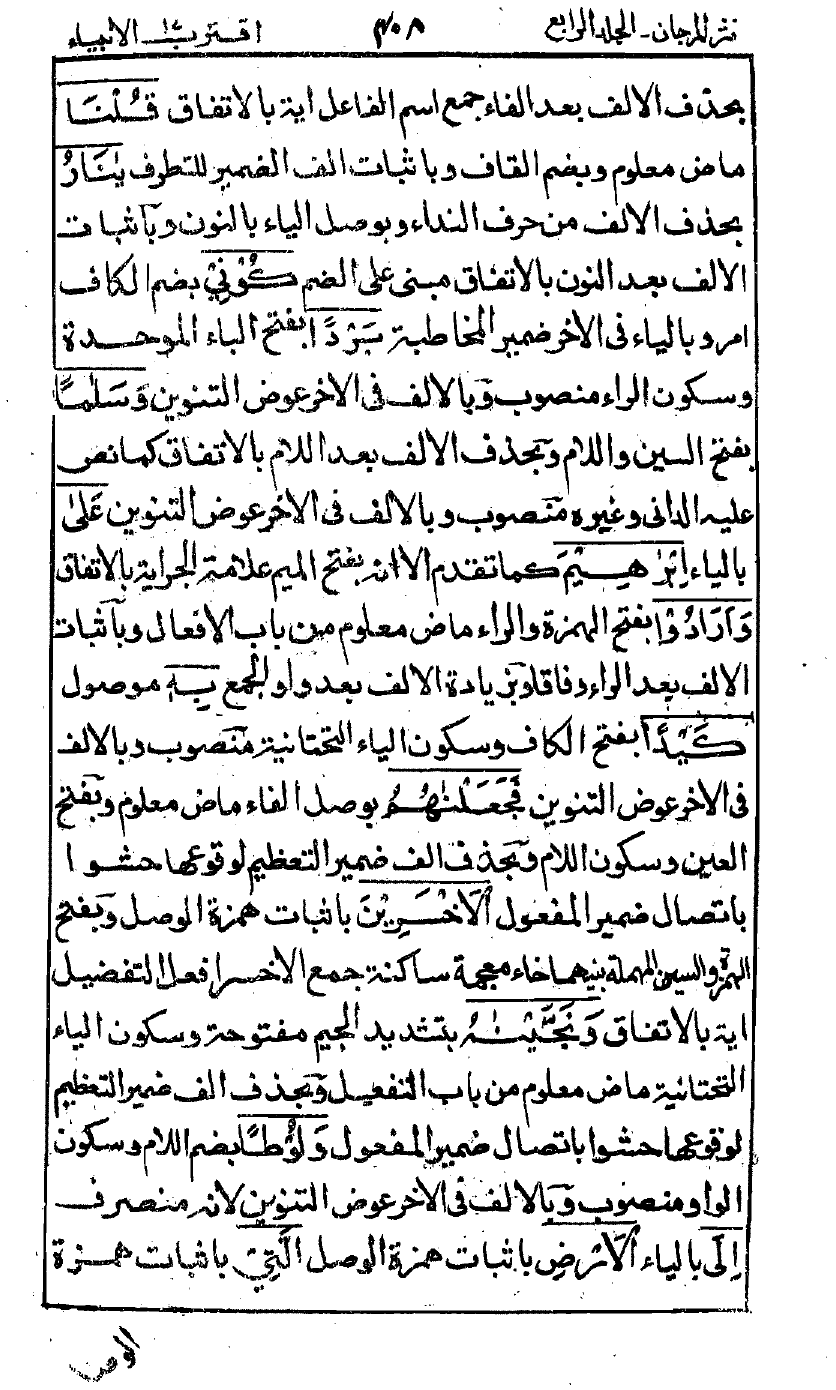 نثر المرجان - الجلد الرابع ٤٠٨ اقترب ١٧ - الانبياء
بحذف الالف بعد الفاء جمع اسم الفاعل اية بالاتفاق قُلْنَا
ماض معلوم وبضم القاف وباثبات الف الضمير للتطرف يٰنَارُ
بحذف الالف من حرف النداء وبوصل الياء بالنون وباثبات
الالف بعد النون بالاتفاق مبنى على الضم كُوْنِيْ بضم الكاف
امر وبالياء فى الاخر ضمير المخاطبة بَرْدًا بفتح الباء الموحدة
وسكون الراء منصوب وبالالف فى الاخر عوض التنوين وَسَلٰمًا
بفتح السين واللام وبحذف الالف بعد اللام بالاتفاق كما نص
عليه الدانى وغيره منصوب وبالالف فى الاخر عوض التنوين عَلٰى
بالياء اِبْرٰهِيْمَ كما تقدم الا انه بفتح الميم علامة الجر اية بالاتفاق
وَاَرَادُوْا بفتح الهمزة والراء ماض معلوم من باب الافعال وباثبات
الالف بعد الراء وفاقا وبزيادة الالف بعد واو الجمع بِهٖ موصول
كَيْدًا بفتح الكاف وسكون الياء التحتانية منصوب وبالالف
فى الاخر عوض التنوين فَجَعَلْنٰهُمُ بوصل الفاء ماض معلوم وبفتح
العين وسكون اللام وبحذف الف ضمير التعظيم لوقوعها حشوا
باتصال ضمير المفعول اَلْاَخْسَرِيْنَ باثبات همزة الوصل وبفتح
الهمزة والسين المهملة بينهما خاء معجمة ساكنة جمع الاخسر افعل التفضيل
اية بالاتفاق وَنَجَّيْنٰهُ بتشديد الجيم مفتوحة وسكون الياء
التحتانية ماض معلوم من باب التفعيل وبحذف الف ضمير التعظيم
لوقوعها حشوا باتصال ضمير المفعول وَلُوْطًا بضم اللام وسكون
الواو منصوب وبالالف فى الاخر عوض التنوين لانه منصرف
اِلَى بالياء اَلْاَرْضِ باثبات همزة الوصل الَّتِيْ باثبات همزة
الوصل